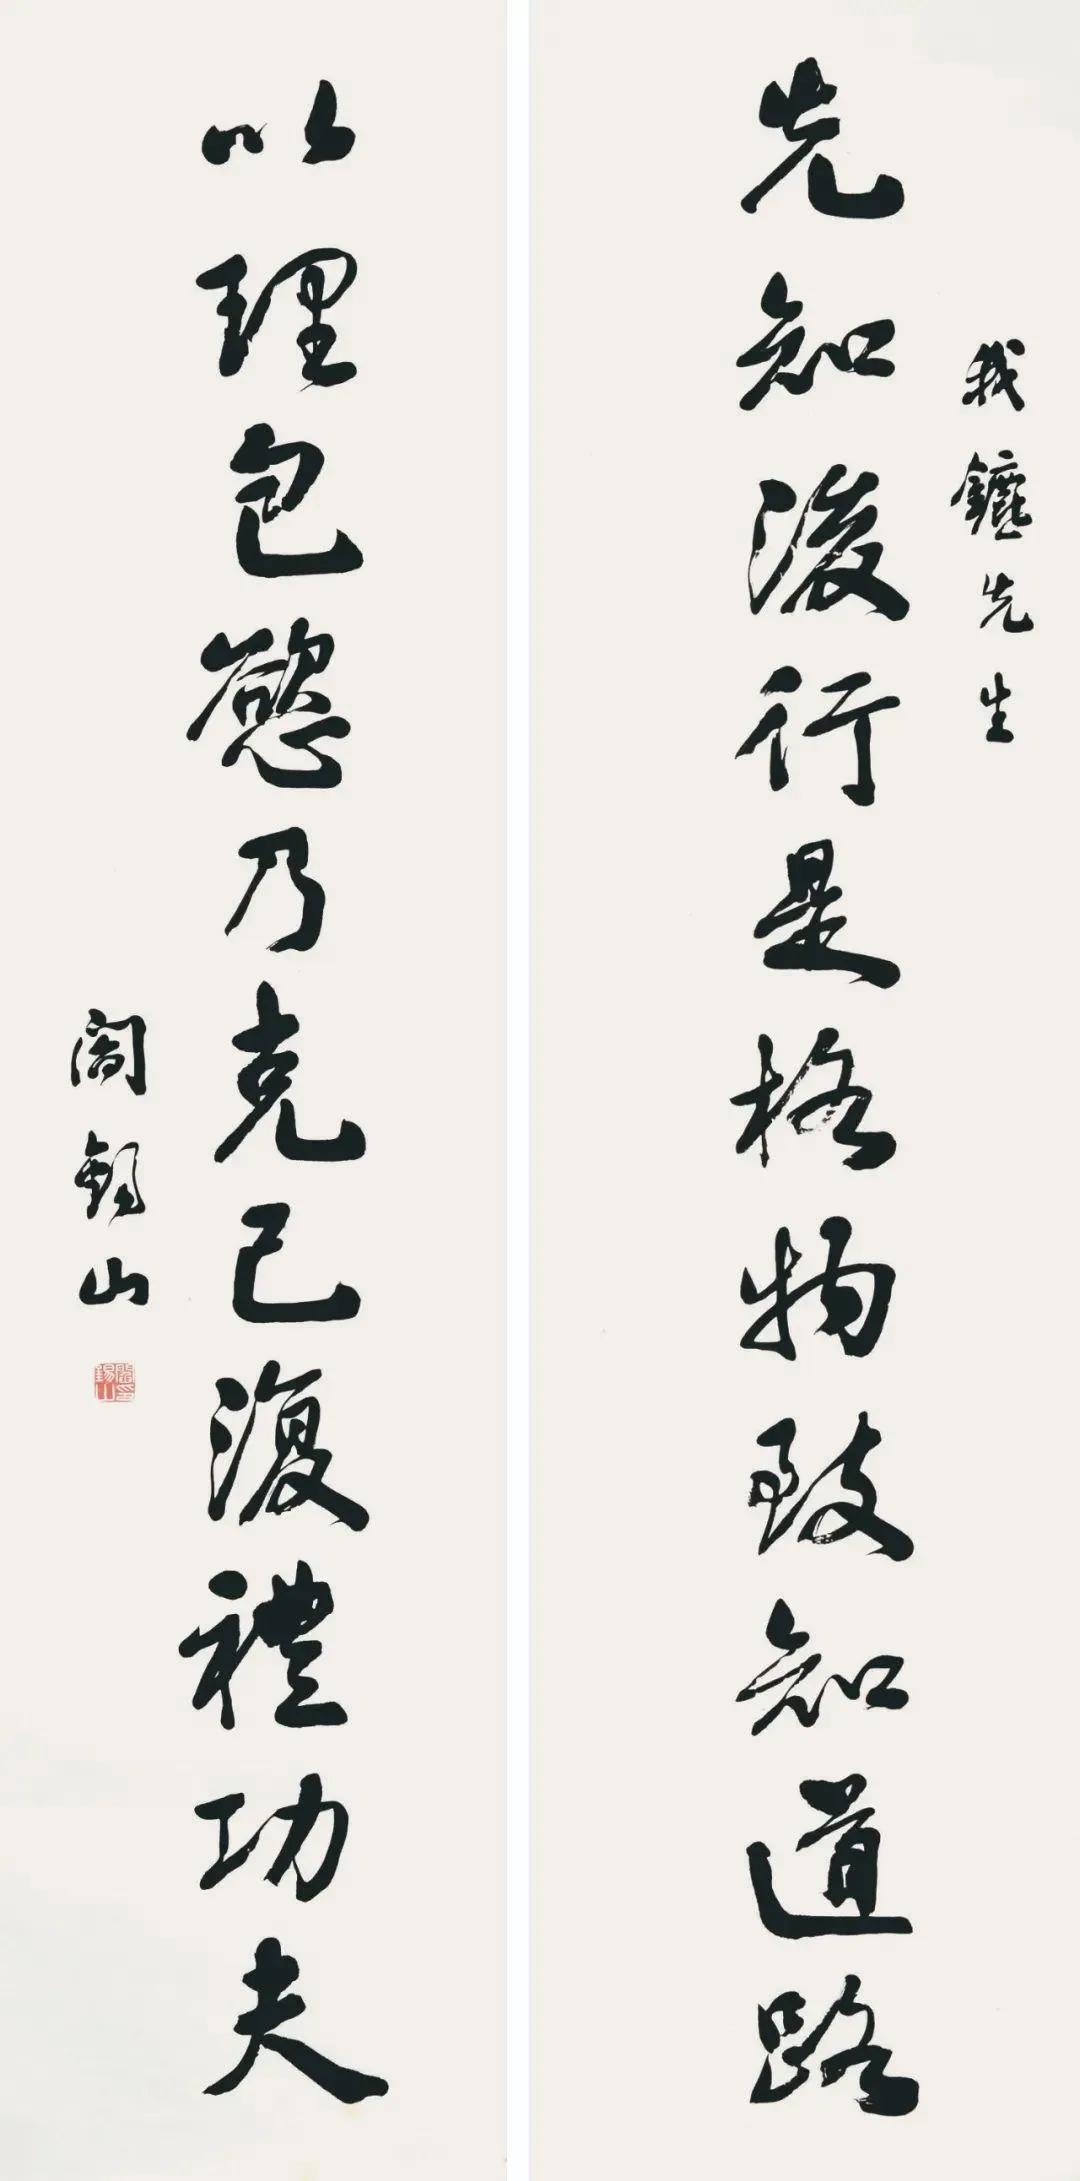 我鑣先生
先知後行是格物致知道路
以理包慾乃克己復禮功夫
閻錫山
閻錫山印